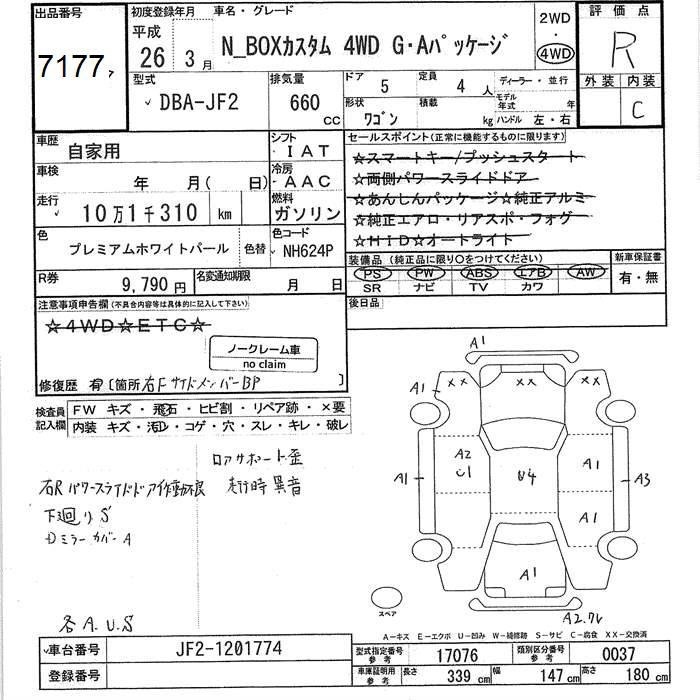 出品番号
7177
初度登録年月
平成
26 3月
車名・グレード
N_BOXカスタム 4WD G・Aパッケージ
2WD
・
4WD
評価点
R
外装 内装
C
型式
DBA-JF2
排気量
660 CC
ドア
5
定員
4 人
ディーラー・並行
形状
ワゴン
積載
kg
モデル年式 年
ハンドル 左・右
車歴
自家用
シフト
IAT
車検
年 月( 日)
冷房
AAC
走行
10万1千310 km
燃料
ガソリン
色
プレミアムホワイトパール
色替
色コード
NH624P
R券
9,790 円
名変通知期限
月 日
セールスポイント(正常に機能するものに限ります)
☆スマートキー/プッシュスタート
☆両側パワースライドドア
☆あんしんパッケージ☆純正アルミ
☆純正エアロ・リアスポ・フォグ
☆HID☆オートライト
装備品(純正品に限り○をつけてください)
PS PW ABS エアB AW
SR ナビ TV カワ
新車保証書
有・無
後日品
注意事項申告欄(不具合内容等は具体的に記入して下さい)
☆4WD☆ETC☆
ノークレーム車
no claim
修復歴 有 [箇所 右Fサイドメンバー BP ]
検査員
記入欄
FW キズ・飛石・ヒビ割・リペア跡・×要
内装 キズ・汚レ・コゲ・穴・スレ・キレ・破レ
ロアサポート歪
右R パワースライドドア作動不良 走行時異音
下廻りS
Dミラーカバー A
各A.U.S
A1
A1
XX
XX
XX
A1
A2
U1
U4
A1
A3
A1
A1
A2.
スペア
A－キズ E－エクボ U－凹み W－補修跡 S－サビ C－腐食 XX－交換済
車台番号
JF2-1201774
登録番号
型式指定番号
参考
17076
類別区分番号
参考
0037
車庫証明用
参考
長さ 339 cm 幅 147 cm 高さ 180 cm